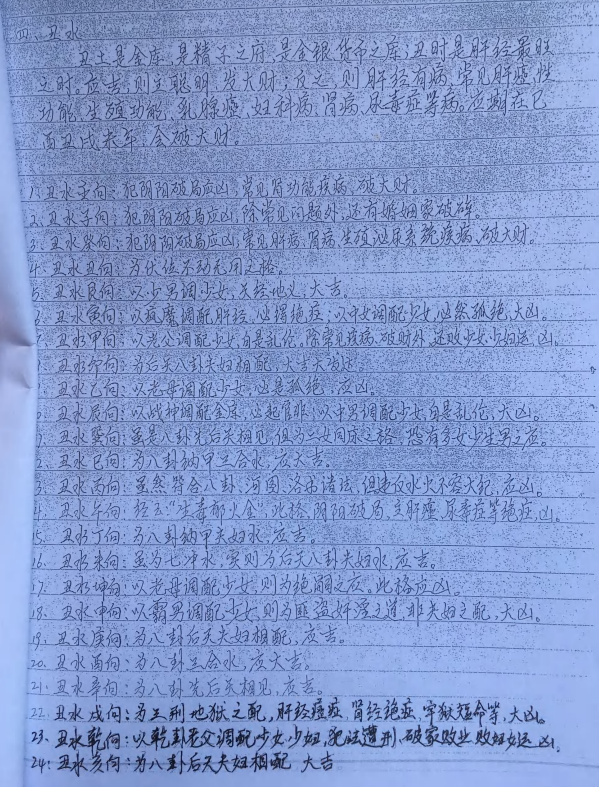 四、丑水
丑土是金库,是精子之府,是金银货币之库;丑时是肝经最旺
之时。应吉,则主聪明,发大财;反之,则肝经有病,常见肝癌,性
功能,生殖功能,乳腺癌,妇科病,肾病,尿毒症等病。应期在巳
酉丑戌未年,会破大财。
1、丑水壬向:犯阴阳破局应凶,常见肾功能疾病,破大财。
2、丑水子向:犯阴阳破局应凶,除常见问题外,还有婚姻家破碎。
3、丑水癸向:犯阴阳破局应凶,常见肝病,肾病,生殖泌尿系统疾病,破大财。
4、丑水丑向:为伏位不动无用之格。
5、丑水艮向:以少男调少女,天经地义,大吉。
丑水寅向:以疯魔调配肝经,必得绝症;以中女调配少女,必然孤绝,大凶。
丑水甲向:以老公调配少女,自是乱伦。除常见疾病,破财外,还败少女少妇运,凶。
丑水卯向:为后天八卦夫妇相配,大吉大
丑水乙向:以老母调配少女,必是孤绝,应凶。
丑水辰向:以战神调配金库,必起官非;以中男调配少女,自是乱伦,大凶。
丑水巽向:虽是八卦先后天相见,但为二女同床之格,恐有多女少生男之应。
丑水巳向:为八卦纳甲三合水,应大吉。
丑水丙向:虽然符合八卦,河图,洛书诸法,但违反水火不容大纪,应凶。
丑水午向:经云"尘毒郁火金"此格,阴阳破局,主肝癌,尿毒症等绝症,凶。
15、丑水丁向:为八卦纳甲夫妇水,应吉。
16、丑水未向:虽为七冲水,实则为后天八卦夫妇水,应吉。
17、丑水坤向:以老母调配少女,则为绝嗣之应。此格应凶。
18、丑水申向:以霸男调配少女,则为匪盗奸淫之道,非夫妇之配,大凶。
19、丑水庚向:为八卦后天夫妇相配,应吉。
20、丑水酉向:为八卦三合水,应大吉。
21、丑水辛向:为八卦先后天相见,应吉。
22、丑水戌向:为三刑地狱之配,肝经癌症,肾经绝症,牢狱短命等,大凶。
23、丑水乾向:以乾卦老父调配少女,少妇,犯法遭刑,破家败业,败妇女运,凶。
24:丑水亥向:为八卦后天夫妇相配 大吉